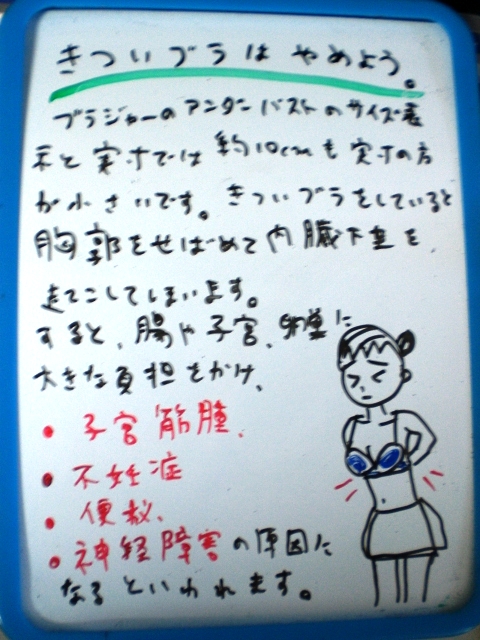 きついブラは やめよう。
ブラジャーのアンダーバストのサイズ表
示と実寸では約10cmも実寸の方
が小さいです。きついブラをしていると
胸郭をせばめて内臓下垂を
起こしてしまいます。
すると、腸や子宮、卵巣に
大きな負担をかけ、
・子宮筋腫、
・不妊症
・便秘、
・神経障害の原因に
なるといわれます。